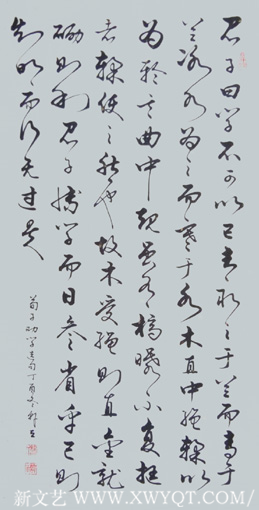 君子曰学不可以已青取之于蓝而青于
蓝冰水为之而寒于水木直中绳輮以
为轮其曲中规虽有槁曝不复挺
者輮使之然也故木受绳则直金就
砺则利君子博学而日参省乎己则
知明而行无过矣
荀子劝学句丁酉冬
新文艺 WWW.XWYQT.COM/